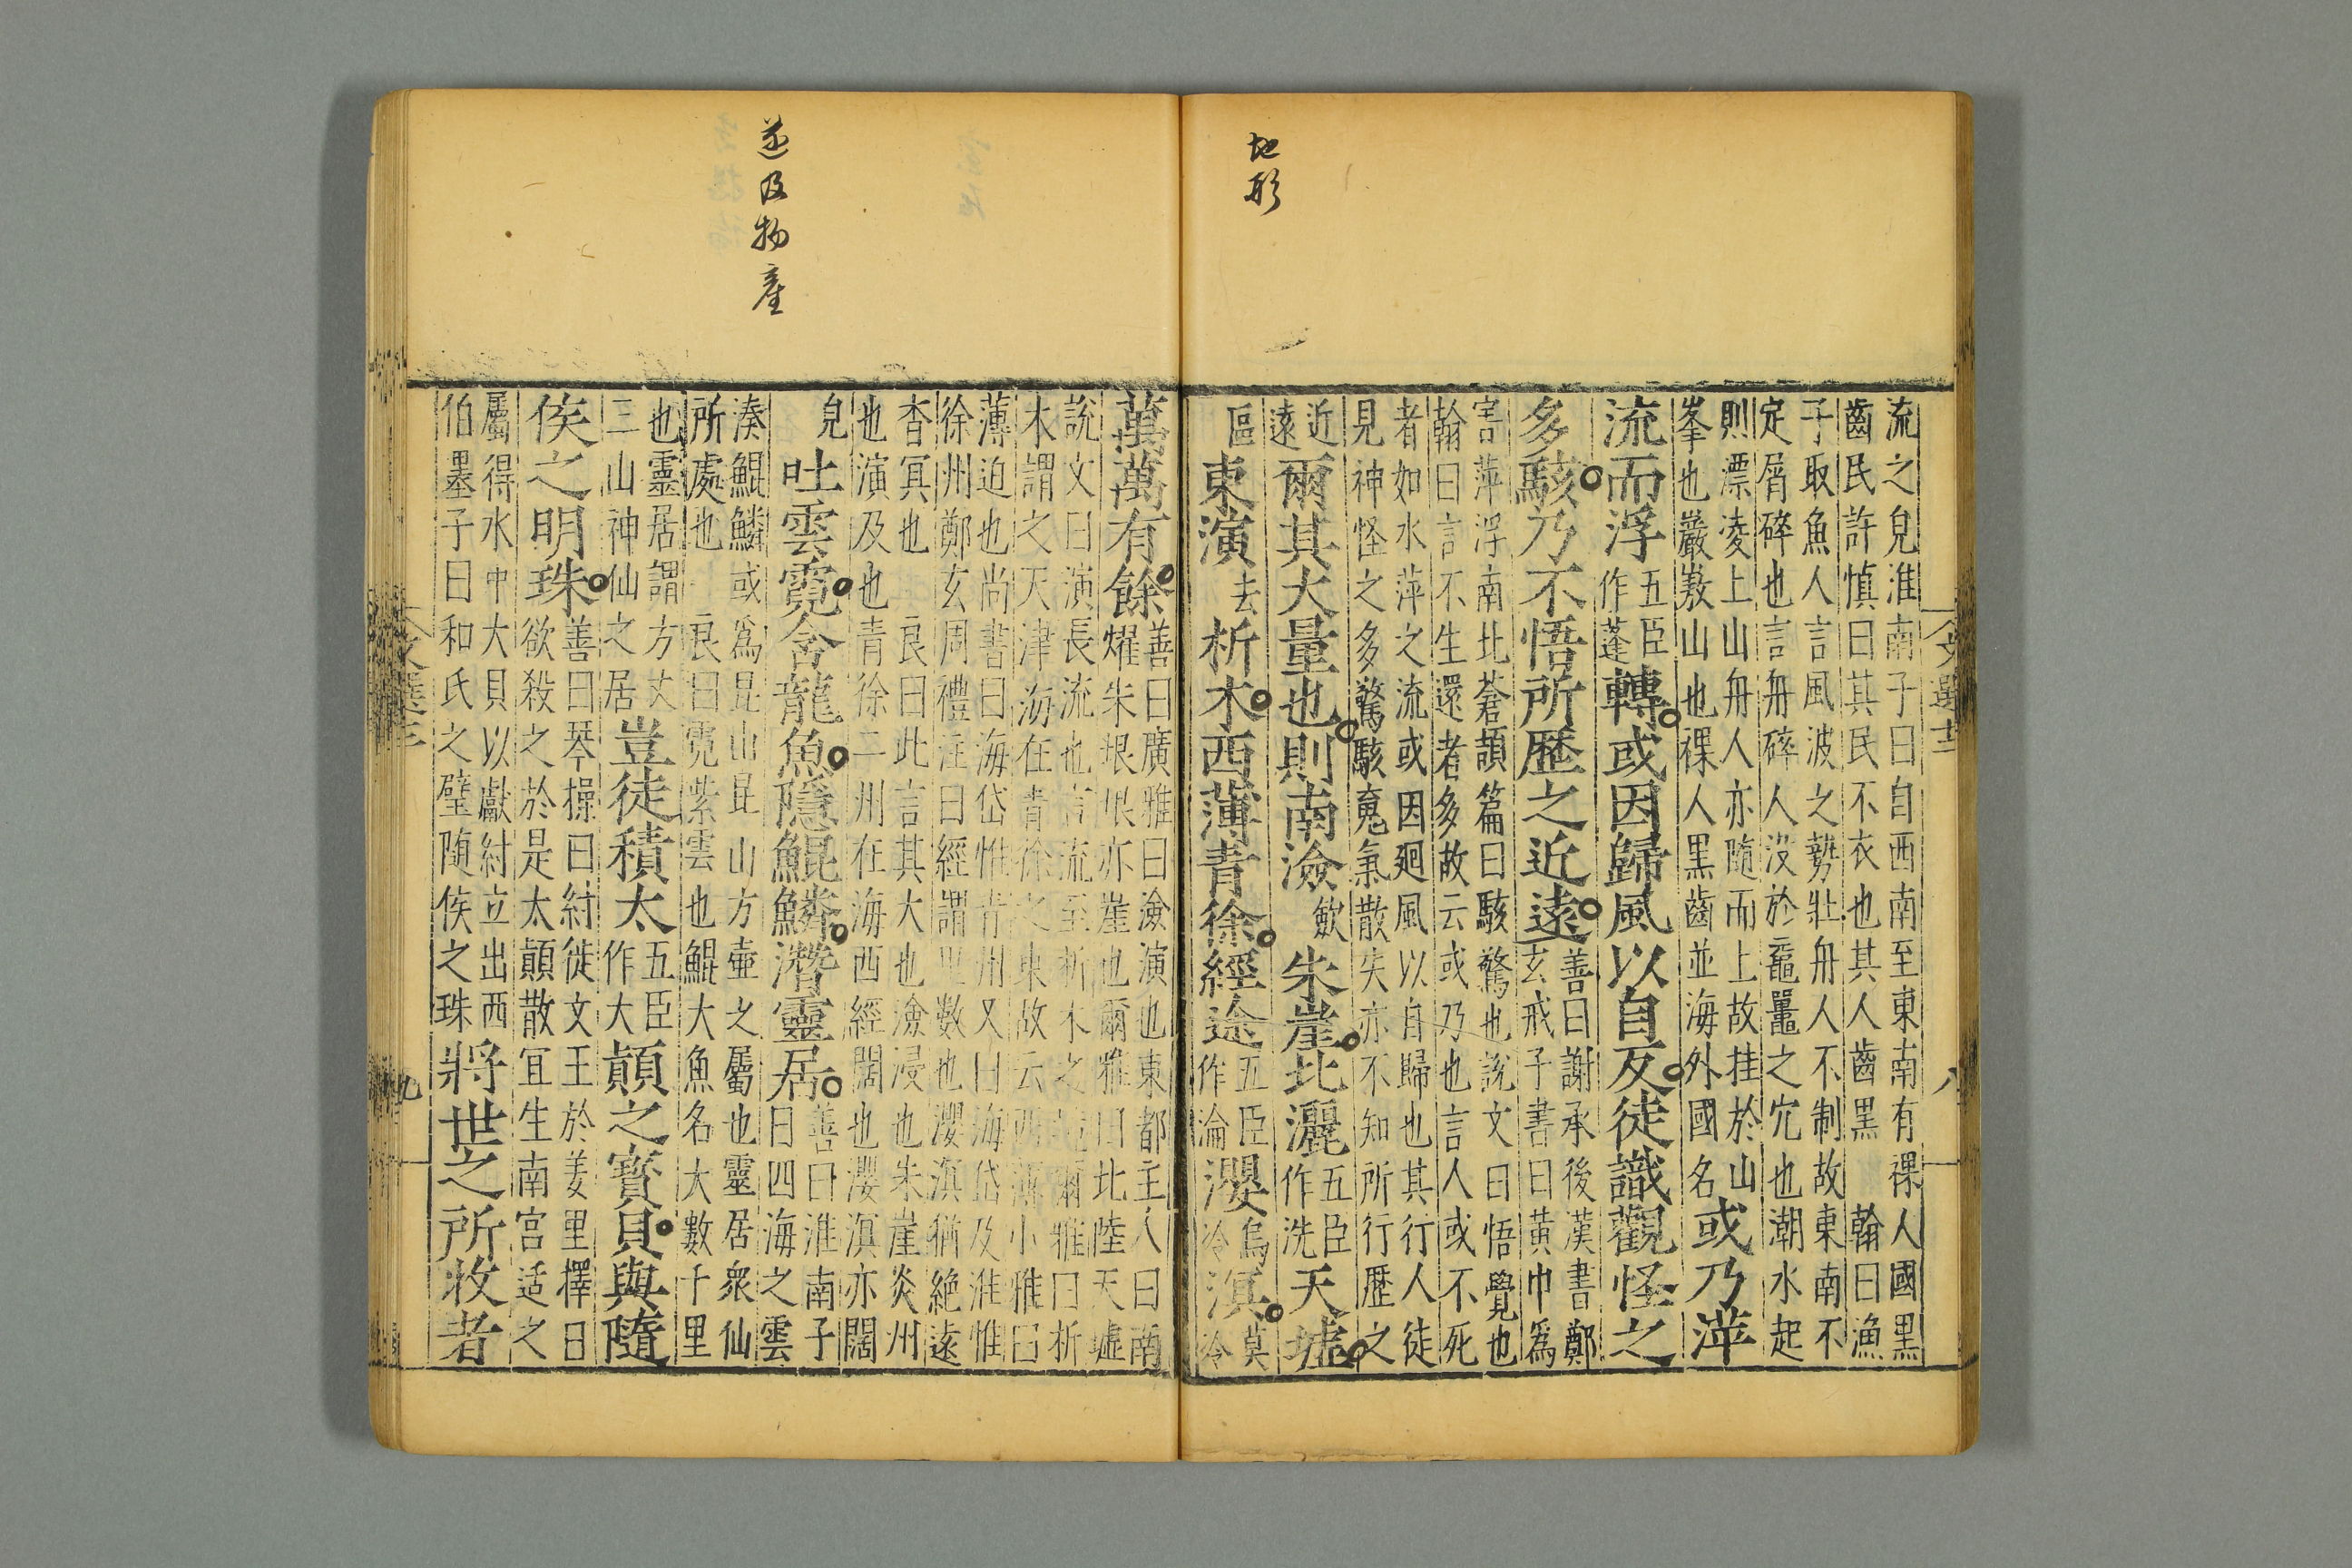 地形
流之皃淮南子曰自西南至東南有裸人國黑
齒民許慎曰其民不衣也其人齒黑 翰曰漁
子取魚人言風波之勢壯舟人不制故東南不
定屑碎也言舟碎人没於黿鼉之穴也潮水起
則漂凌上山舟人亦隨而上故挂於山
峯也嚴嶅山也裸人黑齒並海外國名
或乃萍
流而浮五臣作蓬轉或因歸風以自反徒識觀怪之
多駭乃不悟所歷之近遠
善曰謝承後漢書鄭
玄戒子書曰黃巾爲
害萍浮南北蒼頡篇曰駭驚也說文曰悟覺也
翰曰言不生還者多故云或乃也言人或不死
者如水萍之流或因廻風以自歸也其行人徒
見神怪之多驚駭䰟氣散失亦不知所行歷之
近遠爾其大量也則南澰歛朱崖北灑五臣作洗天墟
區東演去析木西薄青徐經途五臣作淪瀴烏冷溟莫冷
文選十二
八
並及物產
萬萬有餘
善曰廣雅曰澰演也東都主人曰南
燿朱垠垠亦崖也爾雅曰北陸天墟
說文曰演長流也言流至析木之境爾雅曰析
木謂之天津海在青徐之東故云西薄小雅曰
薄迫也尚書曰海岱惟青州又曰海岱及淮惟
徐州鄭玄周禮注曰經謂里數也瀴溟猶絶遠
杳冥也 良曰此言其大也澰浸也朱崖炎州
也演及也青徐二州在海西經闊也瀴溟亦闊
皃吐雲霓含龍魚隱鯤鱗潛靈居
善曰淮南子
曰四海之雲
湊鯤鱗或爲昆山昆山方壺之屬也靈居衆仙
所處也 良曰霓紫雲也鯤大魚名大數千里
也靈居謂方丈
三山神仙之居
豈徒積太五臣作大顚之寶貝與隨
侯之明珠
善曰琴操曰紂徙文王於羑里擇日
欲殺之於是太顚散宜生南宫适之
屬得水中大貝以獻紂立出西
伯墨子曰和氏之璧隨侯之珠
將世之所收者
九